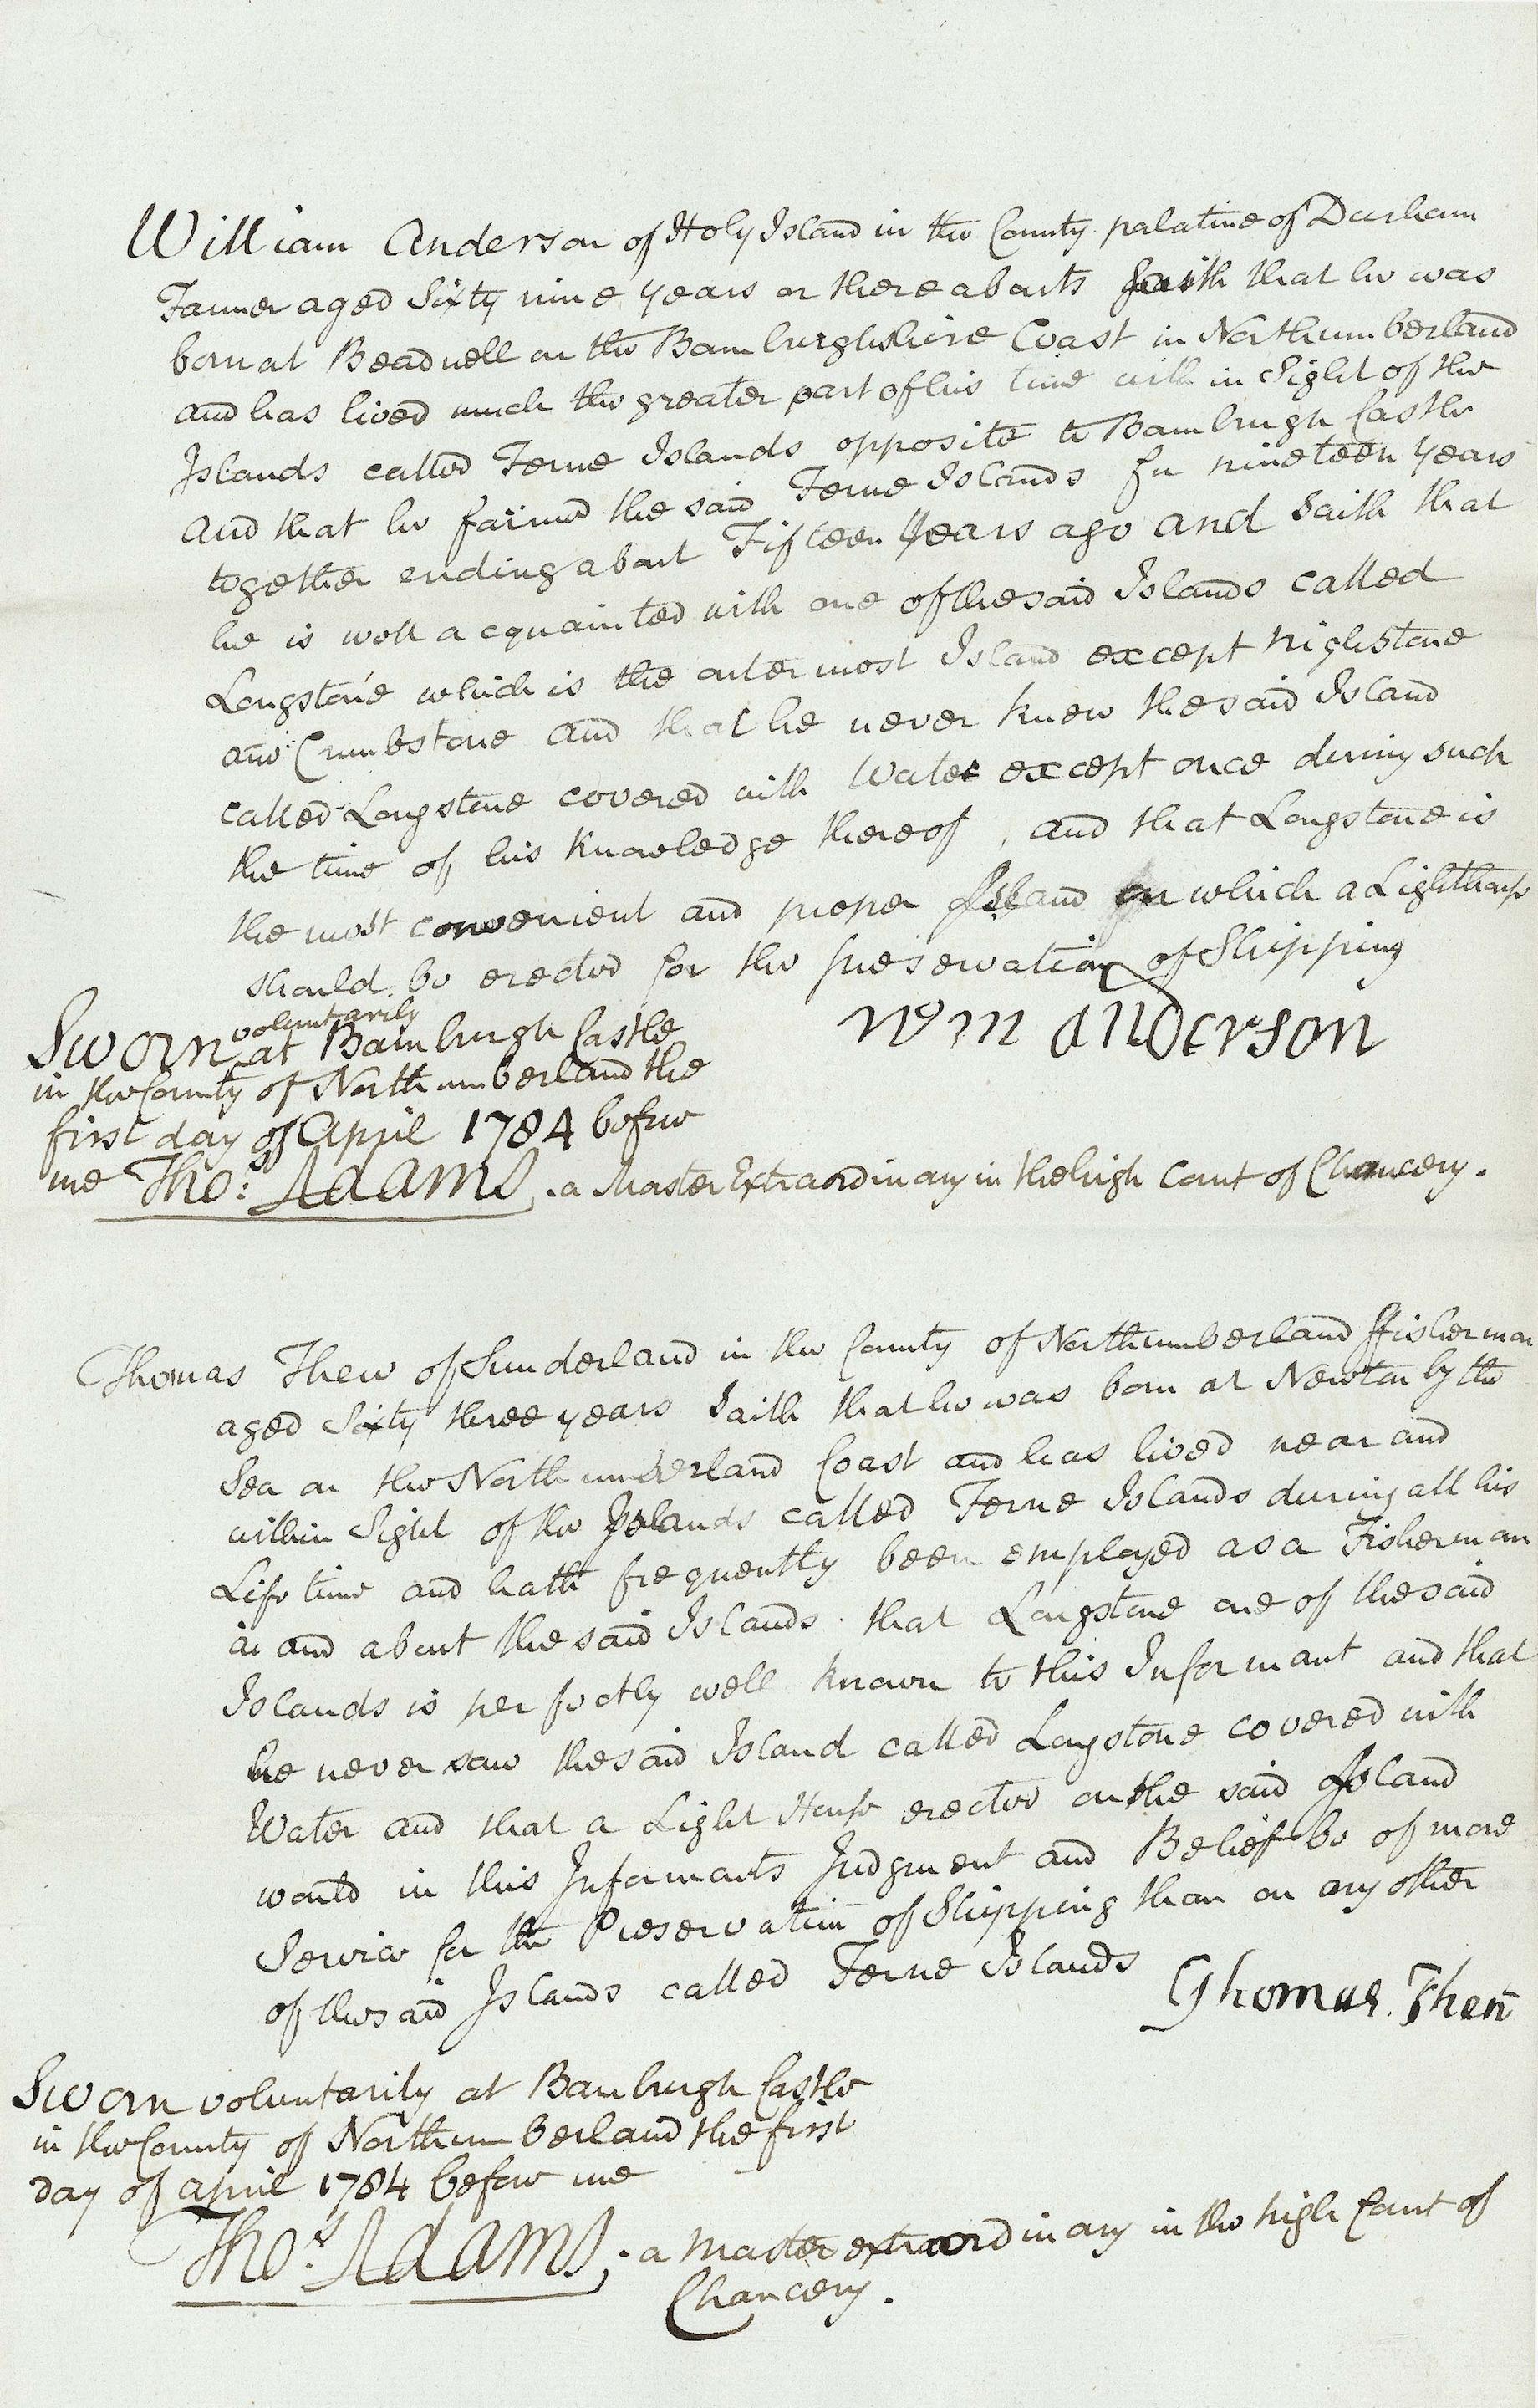 William Anderson of Holy Island in the County palatine of Durham
Farmer aged Sixty nine years or thereabouts saith that he was
born at Beadnell on the Bamburghshire Coast in Northumberland
and has lived much the greater part of his time with in Sight of the
Islands called Ferne Islands opposite to Bamburgh Castle
and that he farmed the said Ferne Islands for nineteen years
together ending about Fifteen Years ago and Saith that
he is well acquainted with one of the said Islands called
Longstone which is the outermost Island except Nighstone
and Crumbstone and that he never knew the said Island
called Longstone covered with Water except once during such
the time of his Knowledge thereof, and that Longstone is
the most convenient and proper Island on which a Lighthouse
should be erected for the preservation of Shipping
Wm Anderson
Sworn voluntarily at Bamburgh Castle
in the County of Northumberland the
first day of April 1784 before
me Thos: Adams. a Master Extraordinary in the high Court of Chancery.
Thomas Thew of Sunderland in the County of Northumberland ffisherman
aged Sixty three years Saith that he was born at Newton by the
Sea on the Northumberland Coast and has lived near and
within Sight of the Islands called Ferne Islands during all his
Life time and hath frequently been employed as a Fisherman
in and about the said Islands. that Longstone one of the said
Islands is perfectly well known to this Informant and that
he never saw the said Island called Longstone covered with
Water and that a Light House erected on the said Island
would in this Informants Judgment and Belief be of more
Service for the Preservation of Shipping than on any other
of the said Islands called Ferne Islands
Thomas. Thew
Sworn voluntarily at Bamburgh Castle
in the County of Northumberland the first
day of April 1784 before me
Thos. Adams. a Master extraordinary in the high Court of
Chancery.